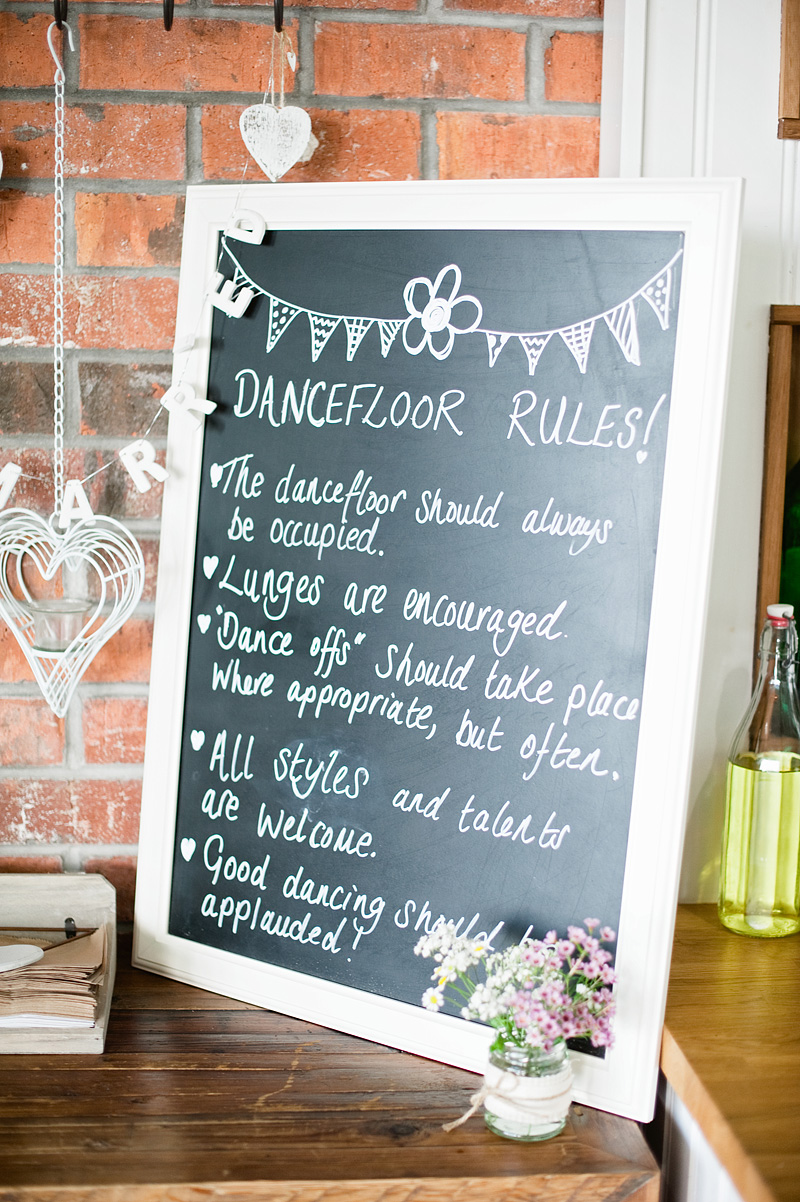 DANCEFLOOR RULES!
The dancefloor should always
be occupied.
Lunges are encouraged.
"Dance offs" should take place
where appropriate, but often.
All styles and talents
are welcome.
Good dancing should
applauded!
MARRED